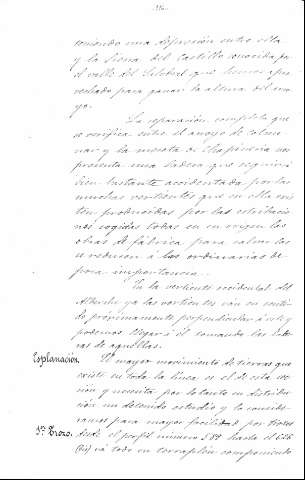 teniendo una depresión entre esta
y la Sierra del Castillo conocida por
el valle del que hemos apro
vechado para ganar la altura del
yo.
La separación completa que
se verifica entre el arroyo de Colme
nar y la meseta de Chapinería nos
presenta una ladera que seguirá
bien bastante accidentada por las
muchas vertientes que en ella exis
ten producidas por las estribacio
nes cogidas todas en su origen las
obras de fábrica para salvarlas
se reducen á las ordinarias de
poca importancia.
En la vertiente occidental del
Alberche ya las vertientes van en senti
do próximamente perpendicular á este y
podemos llegar á él tomando las late
ras de aquellas.
Esplanación. El mayor movimiento de tierras que
existe en toda la línea es el de esta sec
ción y necesita por lo tanto su distribu
ción un detenido estudio y la conside
ramos para mayor facilidad por trozos
1er Trozo. desde el perfil número 589 hasta el 626
(bis) vá todo en terraplén componiendo